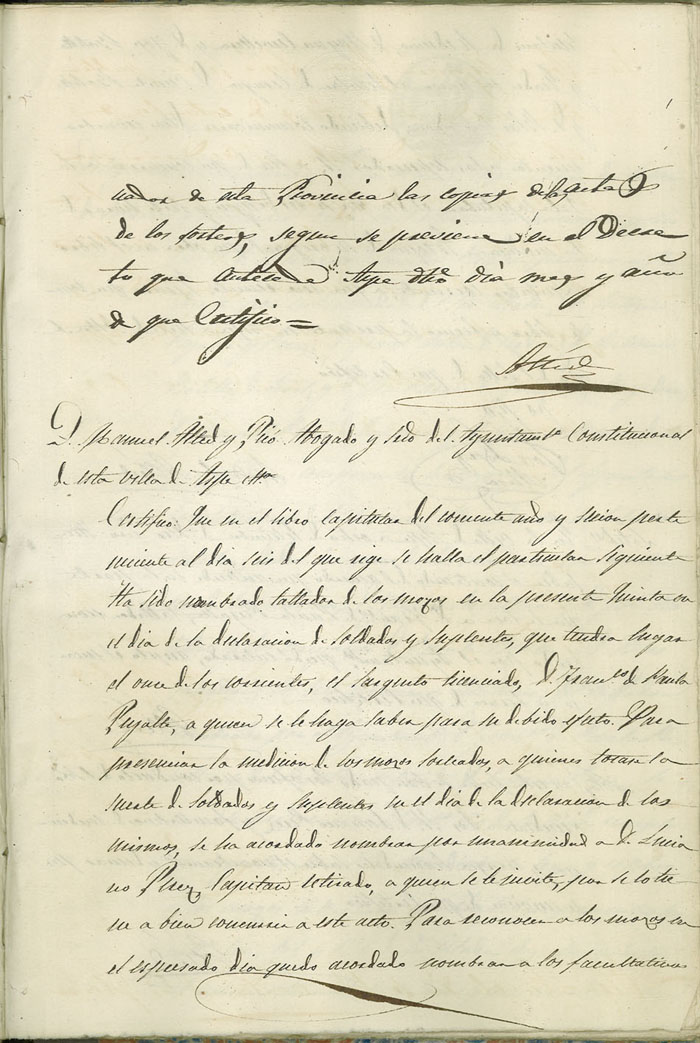 nador de esta Provincia las copias de las actas
de los sorteos, segun se previene en el Decre
to que antecede Aspe dho dia mes y año
de que Certifico =
Alted
D. Manuel Alted y Pio Abogado y Srio del Ayuntamto Constitucional
de esta villa de Aspe
Certifico: Que en el libro Capitular del corriente año y sesion perte
neciente al dia seis del que rige se halla el particular siguiente
Ha sido nombrado tallador de los mozos en la presente Quinta en
el dia de la declaracion de soldados y suplentes, que tendra lugar
el once de los corrientes, el sargento licenciado, D. Franco de Paula
Pujalte, a quien se le haga saber para su debido efecto. Para
presenciar la medicion de los mozos sorteados, a quienes tocase la
suerte de soldados y suplentes en el dia de la declaracion de los
mismos, se ha acordado nombrar por unanimidad a D. Lucia
no Perez, Capitan retirado, a quien se le invite, por si lo tie
ne a bien concurrir a este acto. Para reconocer a los mozos en
el espresado dia quedo acordado nombrar a los facultativos